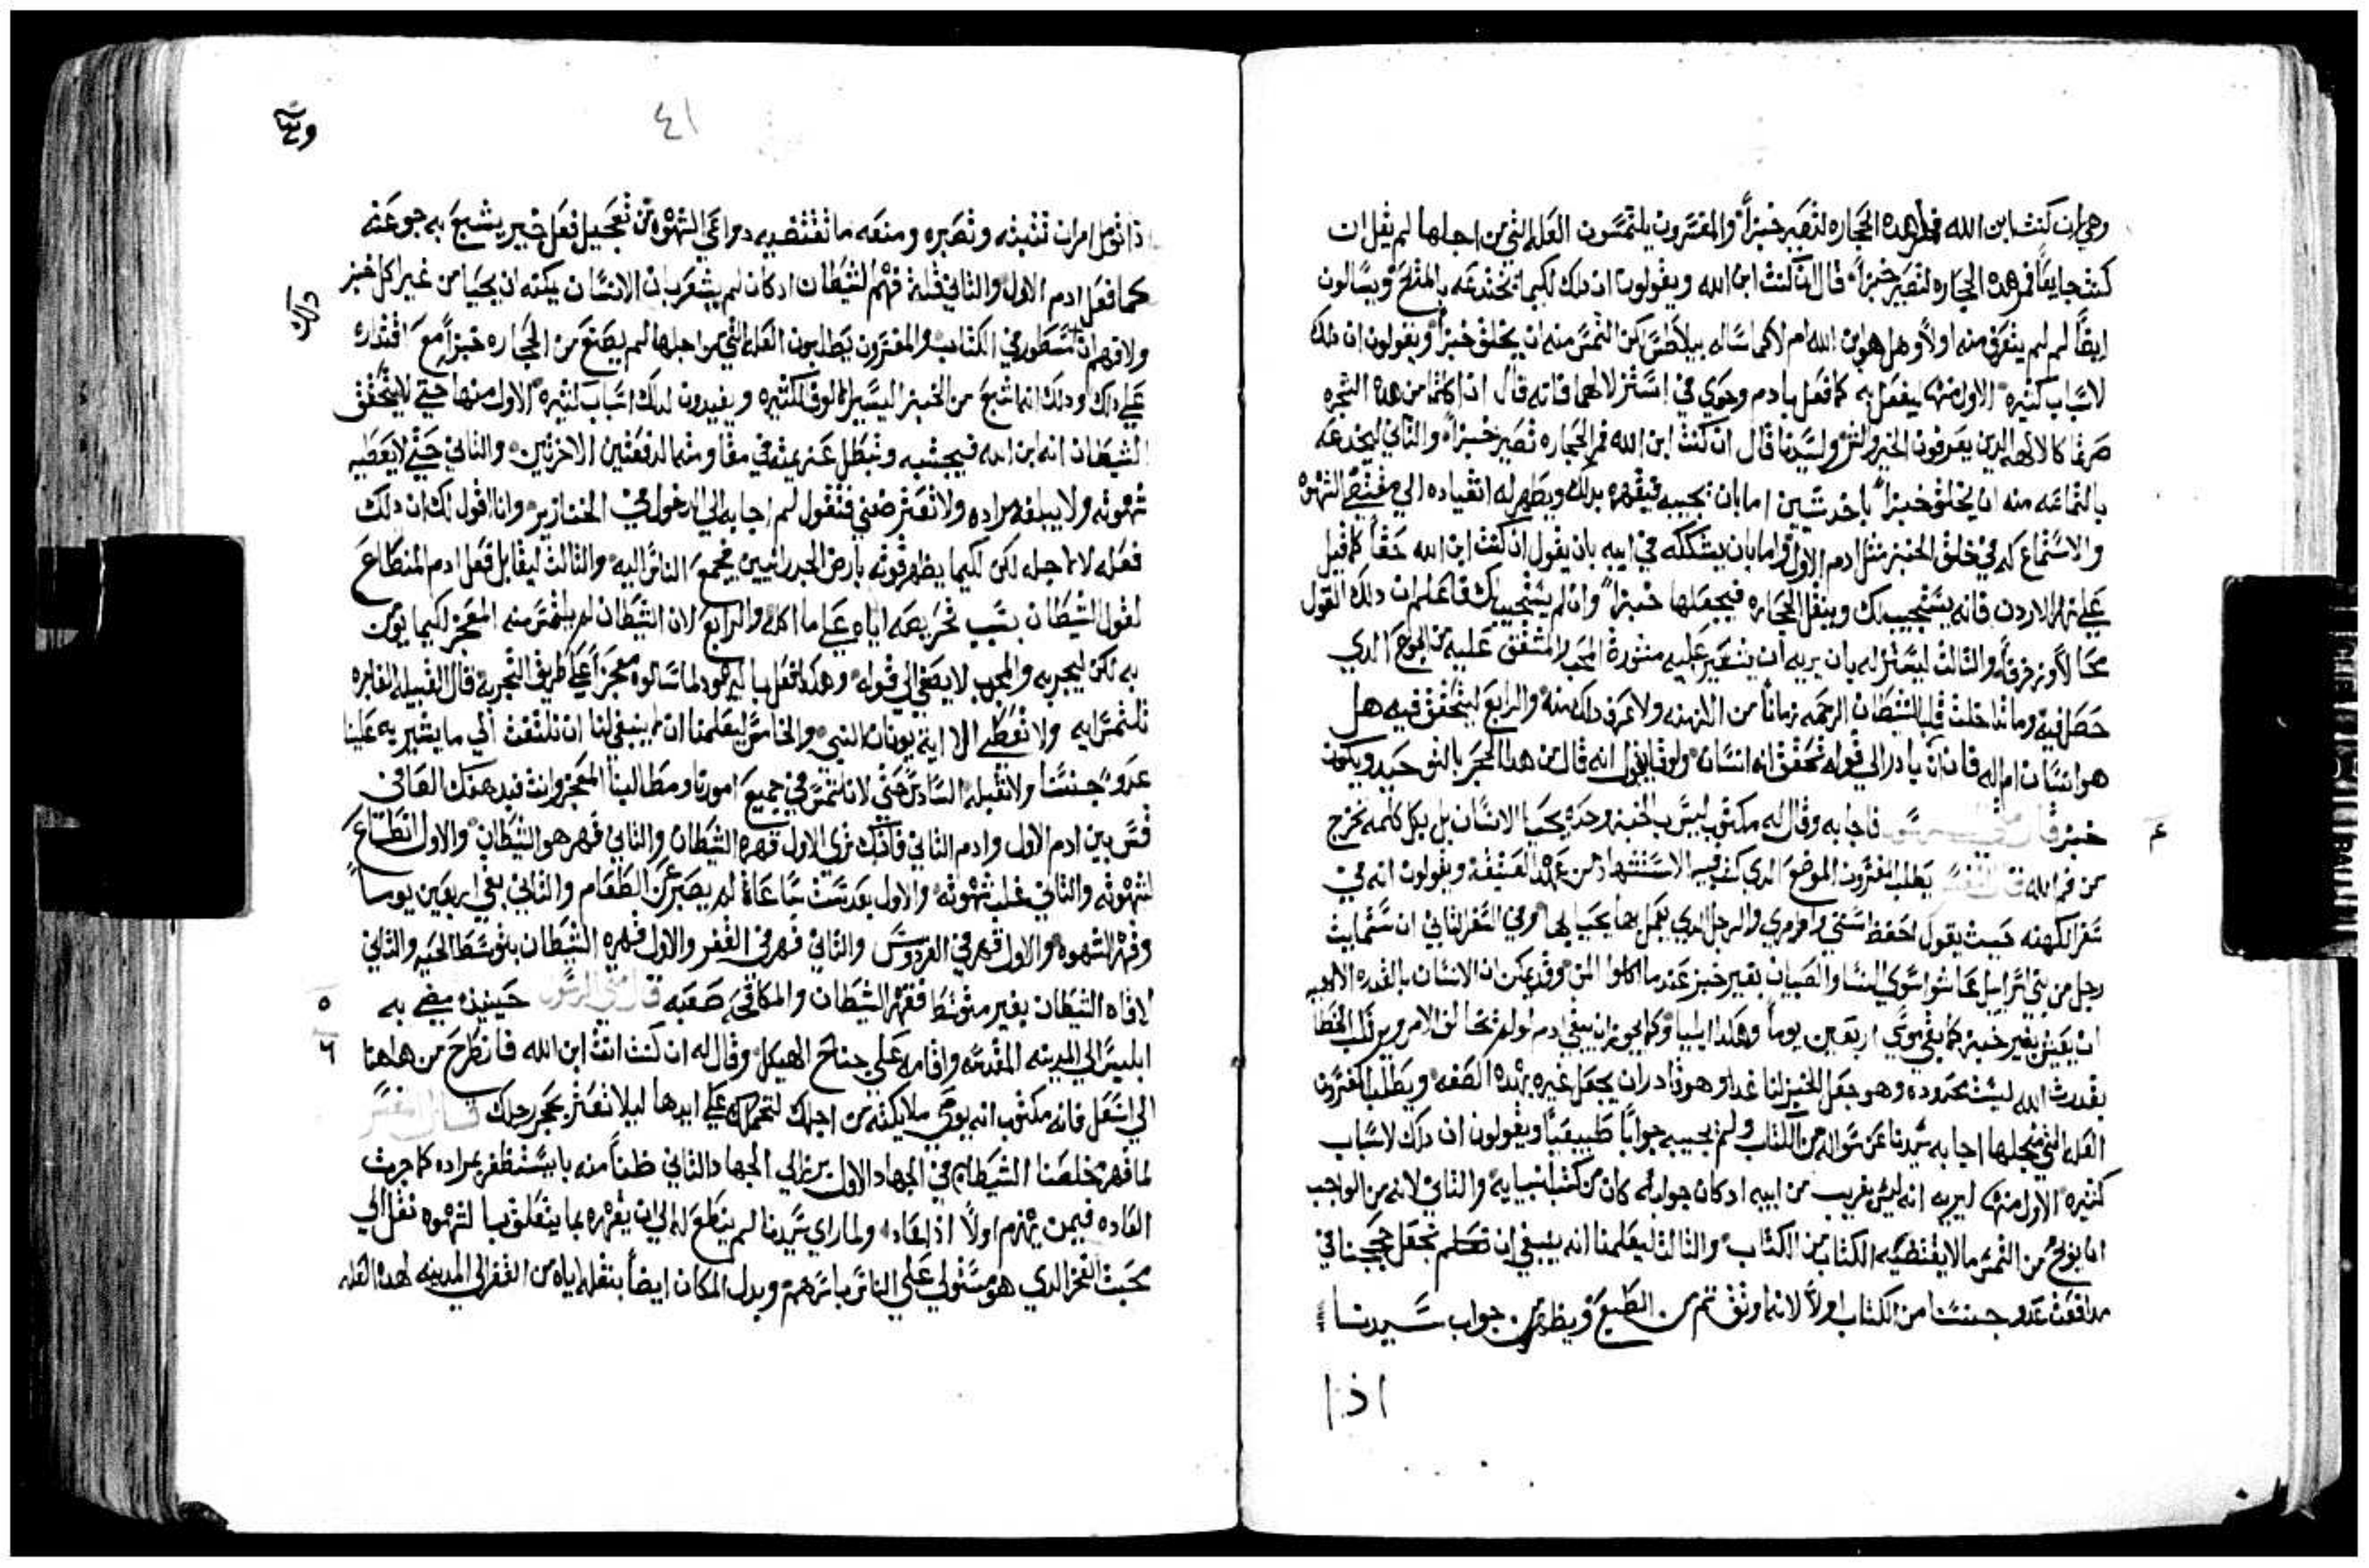 وهي ان كنت ابن الله فمر هده الحجاره لتصير خبزاً والمفسرون يلتمسون العله التي من اجلها لم يقل ان
كنت جايعاً فمر هده الحجاره لتصير خبزاً قال ان كنت ابن الله ويقولون ان دلك لكيما يختدعه بالمدح ويسالون
ايضاً لم لم يتعرف منه اولاً وهل هو ابن الله ام لا كما ساله بيلاطس لكن التمس منه ان يخلق خبزاً ويقولون ان دلك
لاسباب كثيره الاول منها ليفعل به كما فعل بادم وحوي في استزلالهما فانه قال ادا اكلتما من هده الشجره
صرتما كالالهه الدين يعرفون الخير والشر ولسيدنا قال ان كنت ابن الله فمر الحجاره تصير خبزاً والثاني ليخدعه
بالتماسه منه ان يخلق خبزاً باحد شيين اما بان يجيبه فيقهره بدلك ويظهر له انقياده الي مقتضي الشهوه
والاستماع له في خلق الخبز مثل ادم الاول واما بان يشككه في ابيه بان يقول ان كنت ابن الله حقاً كما قيل
علي نهر الاردن فانه يستجيب لك وينقل الحجاره فيجعلها خبزاً وان لم يستجيب لك فاعلم ان دلك القول
محالاً وزخرفة والثالث ليستزله بان يريه ان يشير عليه مشورة المحب المشفق عليه من الجوع الدي
حصل فيه وما تداخلت قلب الشيطان الرحمه زماناً من الازمنه ولا عرف دلك منه والرابع ليتحقق فيه هل
هو انسان ام اله فان بادر الي قوله تحقق انه انسان ولوقا يقول انه قال من هدا الحجر بالتوحيد ويكون
خبز قال متي الرسول فاجابه وقال له مكتوب ليس بالخبز وحده يحيا الانسان بل بكل كلمه تخرج
من فم الله قال المفسر يطلب المفسرون الموضع الدي كتب فيه الاستشهاد من العتيقه ويقولون انه في
سفر الكهنه حيث يقول احفظ سنني واوامري والرجل الدي يعمل بها يحيا بها وفي السفر الثاني ان ستمايت
رجل من بني اسراييل عاشوا سوي النسا والصبيان بغير خبز عندما اكلوا المن وقد يمكن ان الانسان بالقدره الالهيه
ان يعيش بغير خبز كما بقي موسي اربعين يوماً وهكدا ايليا وكما يجوز ان يبقي ادم لو لم يخالف الامر ويرتكب الخطا
بقدرت الله ليست محدوده وهو جعل الخبز لنا غدا وهو قادر ان يجعل غيره بهده الصفه ويطلب المفسرون
العله التي من اجلها اجابه سيدنا عن سواله من الكتاب ولم يجيبه جواباً طبيعياً ويقولون ان دلك لاسباب
كثيره الاول منها ليريه انه ليس بغريب من ابيه اد كان جوابه كان من كتب انبيايه والثاني لانه من الواجب
ان يوبخ من التمس ما لا يقتضيه الكتاب من الكتاب والثالث ليعلمنا انه ينبغي ان نتعلم نجعل حججنا في
مدافعت عدو جنسنا من الكتاب اولاً لانه اوثق ثم من الطبع ويظهر من جواب سيدنا
اذا
٤١
ذا قول امرات تثبته وتصبره ومنعه ما تقتضيه دواعي الشهوه من تعجيل فعل خبز يشبع به جوعته
كما فعل ادم الاول والثاني قلة فهم الشيطان ادكان لم يشعر بان الانسان يمكنه ان يحيا من غير اكل خبز
ولا فهم انه مسطور في الكتاب والمفسرون يطلبون العله التي من اجلها لم يصنع من الحجاره خبزاً مع اقتداره
علي دلك ودلك انه اشبع من الخبز اليسير الالوف الكثيره ويفيدون لدلك اسباب كثيره الاول منها حتي لا يتحقق
الشيطان انه ابن الله فيجتنبه وتبطل عزيمته في مقاومته الدفعتين الاخرتين والثاني حتي لا يعطيه
شهوته ولا يبلغه مراده ولا تعترضني فتقول لم اجابه الي الدخول في الخنازير وانا اقول لك ان دلك
فعله لا من اجله لكن لكيما يظهر قوته بارض الجدرانيين فيجمع الناس اليه والثالث ليقابل فعل ادم المنطاع
لقول الشيطان بسبب تحريصه اياه علي ما اكله والرابع لان الشيطان لم يلتمس منه المعجز لكيما يومن
به لكن ليجربه والمجرب لا يصغي الي قوله وهكدا فعل باليهود لما سالوه معجزاً علي طريق التجربه قال القبيله الفاجره
تلتمس ايه ولا تعطي الا اية يونان النبي والخامس ليعلمنا ان لا ينبغي لنا ان نلتفت الي ما يشير به علينا
عدو جنسنا ولا نقبله السادس حتي لا نلتمس في جميع امورنا ومطالبنا المعجز وانت فيدهتك العافي
قس بين ادم الاول وادم الثاني فانك تري الاول قهره الشيطان والثاني قهر هو الشيطان والاول انطاع
لشهوته والثاني غلب شهوته والاول بعد ست ساعات لم يصبر عن الطعام والثاني بقي اربعين يوماً
وقهر الشهوه والاول قهر في الفردوس والثاني قهر في القفر والاول قهره الشيطان بتوسط الحيه والثاني
لاقاه الشيطان بغير متوسط فقهر الشيطان والمكافحه صعبه قال متي الرسول حينيد مضي به
ابليس الي المدينه المقدسه واقامه علي جناح الهيكل وقال له ان كنت انت ابن الله فانطرح من هاهنا
الي اسفل فانه مكتوب انه يوصي ملايكته من اجلك لتحملك علي ايديها ليلا تعثر بحجر رجلك قال المفسر
لما قهر مخلصنا الشيطان في الجهاد الاول برز الي الجهاد الثاني ظناً منه بانه يستظفر بمراده كما جرت
العاده فيمن يهزم اولاً اذا عاد ولما راي سيدنا لم ينطع له الي ان يقهره بما يتعلق بالشهوه نقل الي
محبت الفخر الدي هو مستولي علي الناس باسرهم وبدل المكان ايضاً بنقله اياه من القفر الي المدينه لهده العله